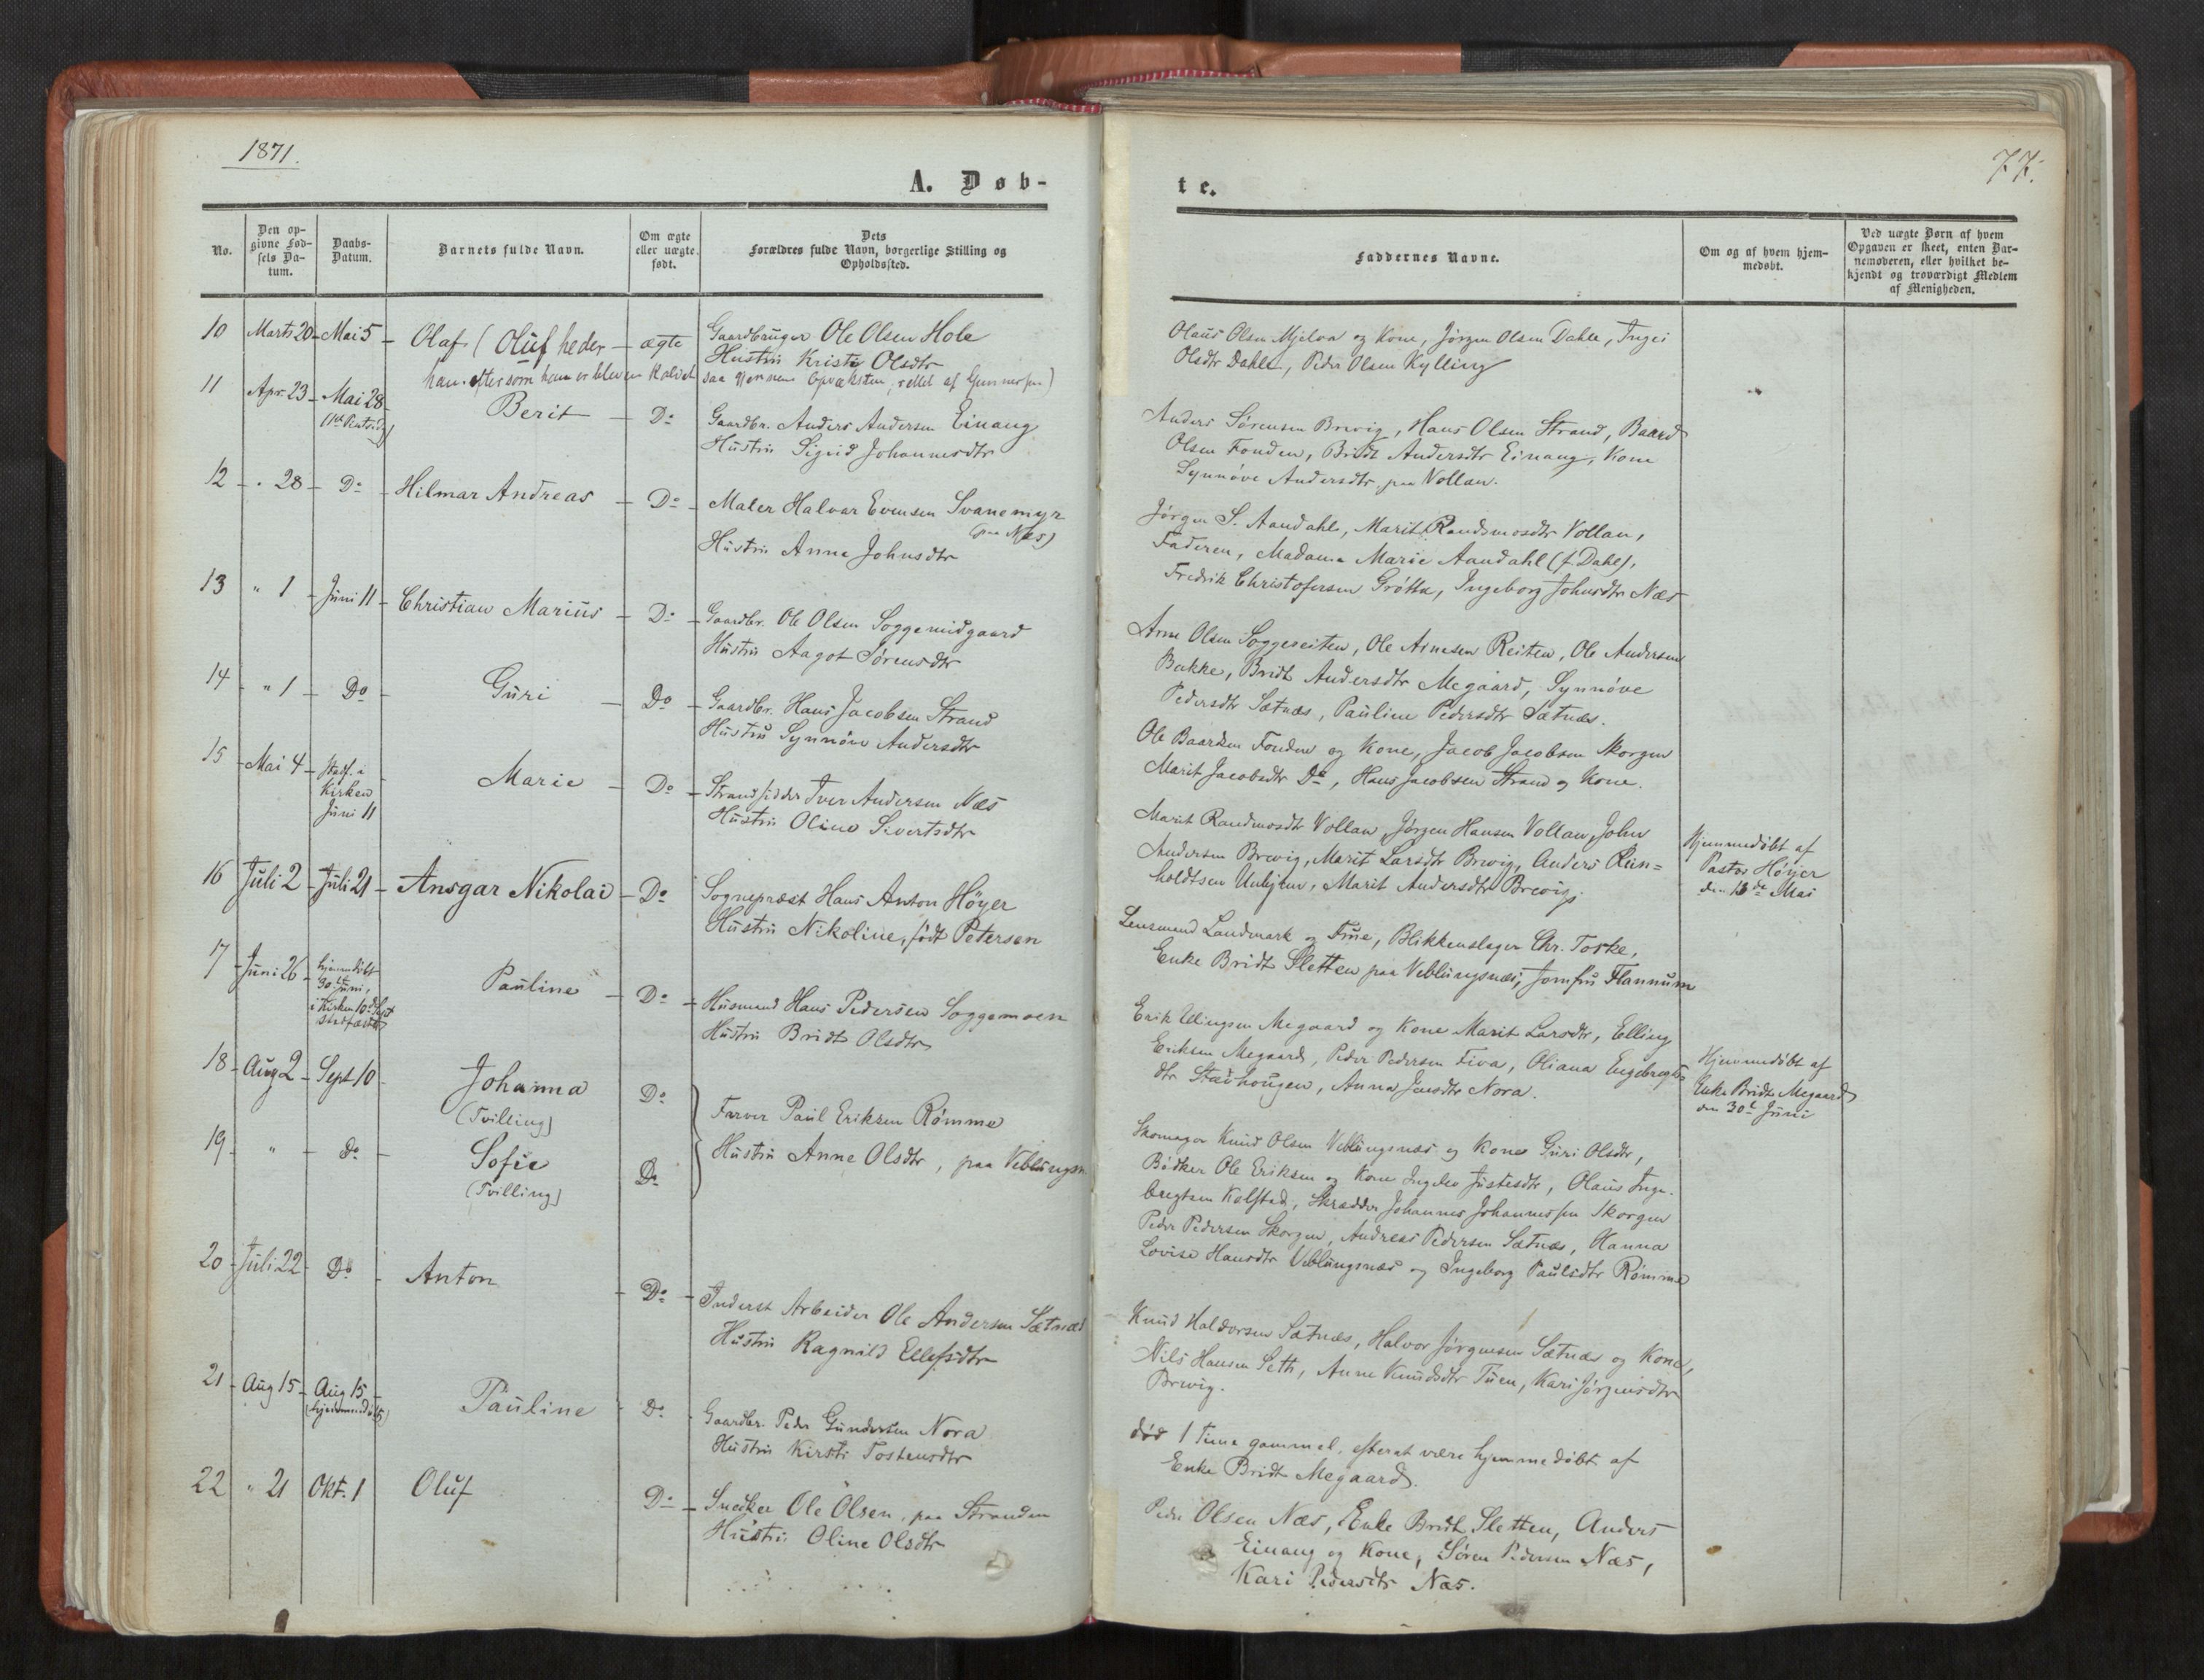 1871.
77.
A. Døb-
te.
No.
Den op-
givne Fød-
sels Da-
tum.
Daabs-
Datum.
Barnets fulde Navn.
Om ægte
eller uægte
født.
Dets
Forældres fulde Navn, borgerlige Stilling og
Opholdssted.
Faddernes Navne.
Om og af hvem hjem-
medøbt.
Ved uægte Børn af hvem
Opgaven er skeet, enten Bar-
nemoderen, eller hvilket be-
kjendt og troværdigt Medlem
af Menigheden.
10 Marts 20 - Mai 5 - Olaf (Oluf heder - ægte
han, eftersom han er bleven kaldet saa gjennem Opvæksten, rettet af Gunnersen)
Gaardbruger Ole Olsen Hole
Hustru Kristi Olsdtr
Olaus Olsen Mjelva og Kone, Jørgen Olsen Dahle, Ingei
Olsdtr Dahle, Peder Olsen Kylling
11 Apr. 23 - Mai 28
(1st Pintsdag)
Berit - Do
Gaardbr. Anders Andersen Einang
Hustru Sigrid Johannesdtr
Anders Sørensen Brevig, Hans Olsen Strand, Baard
Olsen Fonden, Bridt Andersdtr Einang, Kone
Synnøve Andersdtr paa Vollan.
12 - . 28 - Do - Hilmar Andreas - Do -
Maler Halvar Evensen Svanemyr
(paa Næs)
Hustru Anna Johnsdtr
Jørgen S. Aandahl, Marit Randmosdtr Vollan,
Faderen, Madame Marie Aandahl (f. Dahl),
Fredrik Christofersen Grøtta, Ingeborg Johnsdtr Næs
13 " 1 - Juni 11 - Christian Marius - Do -
Gaardbr. Ole Olsen Soggemidgaard
Hustru Aagot Sørensdtr
Arne Olsen Soggereiten, Ole Arnesen Reiten, Ole Andersen
Bakke, Bridt Andersdtr Megaard, Synnøve
Pedersdtr Sætnæs, Pauline Pedersdtr Sætnæs.
14 " 1 - Do - Guri - Do -
Gaardbr. Hans Jacobsen Strand
Hustru Synnøve Andersdtr
Ole Baardsen Fonden og Kone, Jacob Jacobsen Skorgen
Marit Jacobsdtr Do, Hans Jacobsen Strand og Kone.
15 - Mai 4 - Stadf. i
Kirken
Juni 11
Marie - Do -
Strandsidder Iver Andersen Næs
Hustru Oline Sivertsdtr
Marit Randmosdtr Vollan, Jørgen Hansen Vollan, John
Andersen Brevig, Marit Larsdtr Brevig, Anders Rein=
holdtsen Unhjem, Marit Andersdtr Brevig.
Hjemmedøbt af
Pastor Höyer
den 13de Mai
16 Juli 2 - Juli 21 - Ansgar Nikolai - Do -
Sognepræst Hans Anton Höyer
Hustru Nikoline, født Petersen
Lensmand Landmark og Frue, Blikkenslager Chr. Torke,
Enke Bridt Sletten paa Veblungsnæs, Jomfru Flannum
17 - Juni 26 - hjemmedøbt
30te Juni,
i Kirken 10de Sept
stadfæstet
Pauline - Do -
Husmand Hans Pedersen Soggemoen
Hustru Bridt Olsdtr
Erik Ellingsen Megaard og Kone Marit Larsdtr, Elling
Eriksen Megaard, Peder Pedersen Fiva, Oliana Engebregts
dtr Stavhougen, Anna Jensdtr Nora.
Hjemmedøbt af
Enke Bridt Megaard
den 30te Juni
18 - Aug 2 - Sept 10 - Johanna
(Tvilling)
Do
Farver Paul Eriksen Rømme
Hustru Anne Olsdtr, paa Veblungsn
19 - " - Do - Sofie
(Tvilling)
Do
Skomager Knud Olsen Veblungsnæs og Kone Guri Olsdtr,
Bødker Ole Eriksen og Kone Ingebor Justesdtr, Olaus Inge-
bregtsen Kolstad, Skrædder Johannes Johannessen Skorgen
Peder Pedersen Skorgen, Andreas Pedersen Sætnæs, Hanna
Lovise Hansdtr Veblungsnæs og Ingeborg Paulsdtr Rømme
20 - Juli 22 - Do - Anton - Do -
Inderst Arbeider Ole Andersen Sætnæs
Hustru Ragnild Ellefsdtr
Knud Haldorsen Sætnæs, Halvor Jørgensen Sætnæs og Kone,
Nils Hansen Seth, Anne Knudsdtr Tuen, Kari Jørgensdtr
Brevig.
21 - Aug 15 - Aug 15
(hjemmedøbt)
Pauline - Do -
Gaardbr. Peder Gundersen Nora
Hustru Kirsti Tostensdtr
død 1 Time gammel, efterat være hjemmedøbt af
Enke Bridt Megaard.
22 " 21 Okt. 1 Oluf Do -
Snedker Ole Olsen, paa Stranden
Hustru Oline Olsdtr
Peder Olsen Næs, Enke Bridt Sletten, Anders
Einang og Kone, Søren Pedersen Næs,
Kari Pedersdtr Næs.